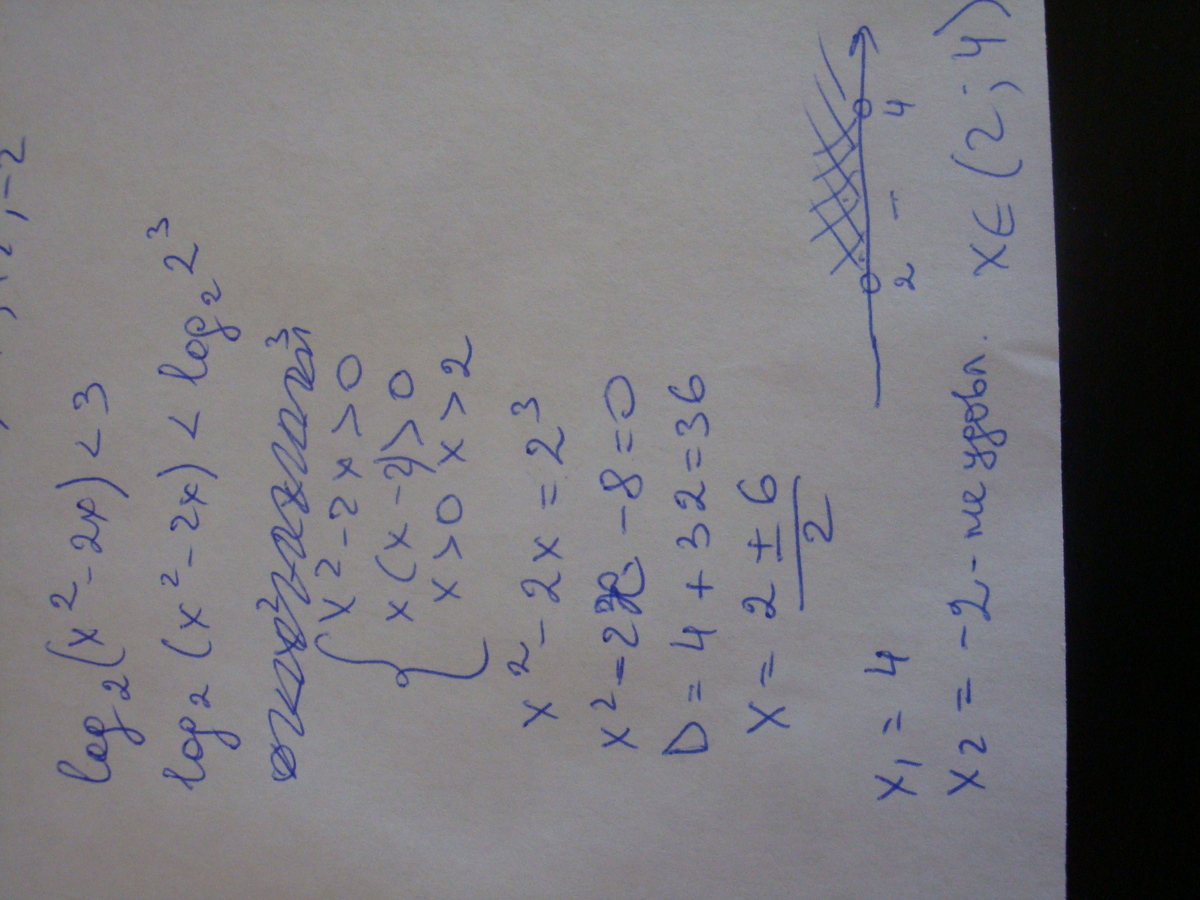 log₂(x² - 2x) < 3
log₂(x² - 2x) < log₂ 2³
x² - 2x > 0
x(x - 2) > 0
x > 0 x > 2
x² - 2x = 2³
x² - 2x - 8 = 0
D = 4 + 32 = 36
x = (2 ± 6)/2
x₁ = 4
x₂ = -2 - не удовл.
2 - 4
x ∈ (2; 4)